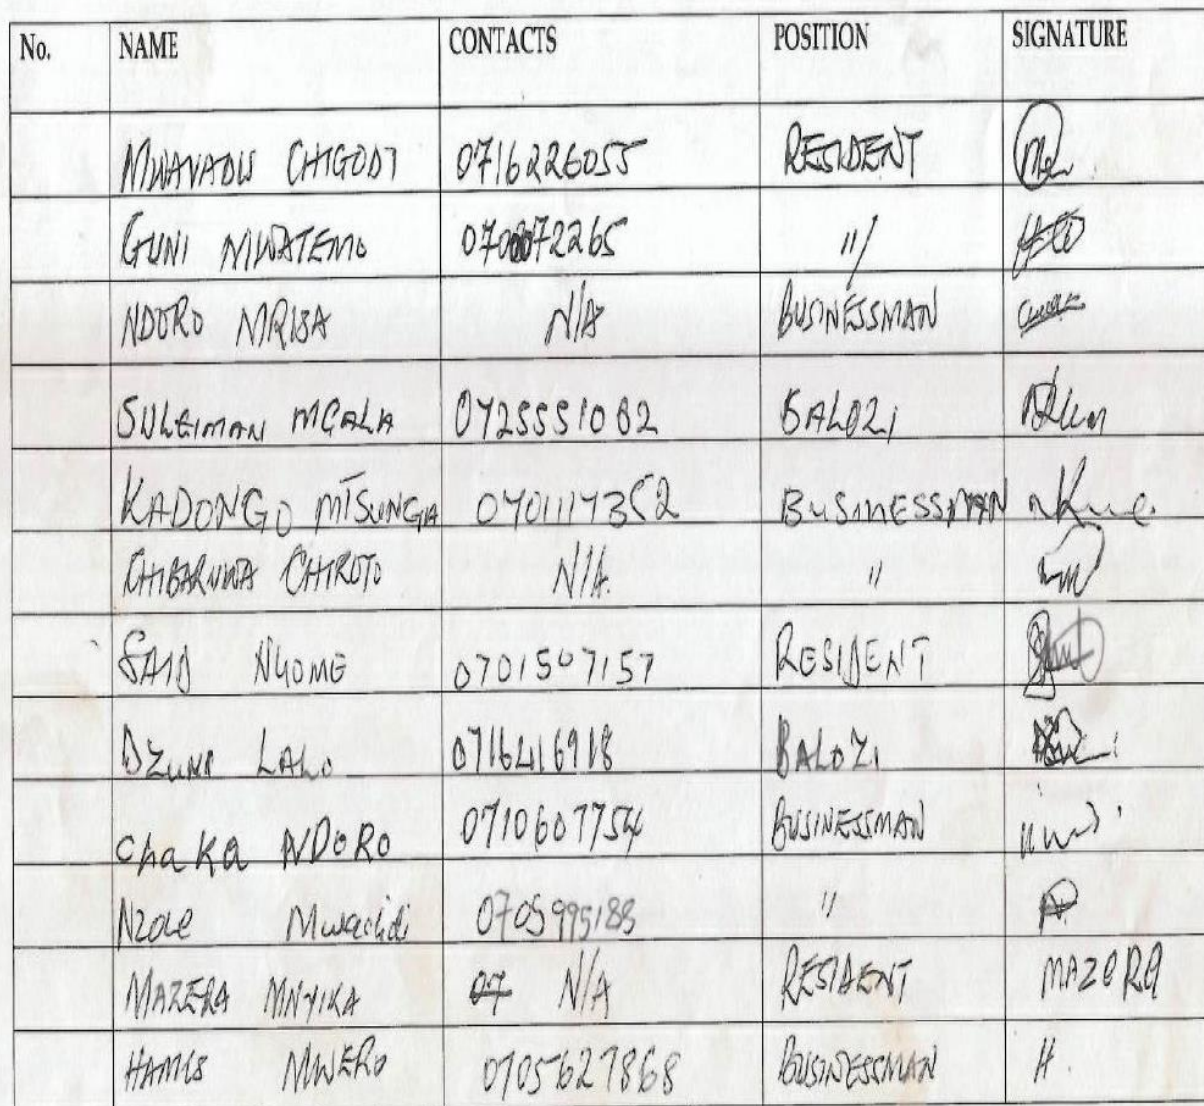 No. NAME CONTACTS POSITION SIGNATURE
CHIGODI 0716226055 RESIDENT
GUNI MWATEMO "
NDORO MRISA N/A BUSINESSMAN
SULEIMAN MGALA 0725551082 BALOZI
KADONGO MTSUNGA BUSINESSMAN
CHIROTO N/A "
SAID NGOME 0701507157 RESIDENT
DZUNA LALO 0716416918 BALOZI
chaka NDORO 0710607754 BUSINESSMAN
Mwachidi 0705995188 "
MAZERA MNYIKA N/A RESIDENT MAZERA
HAMIS MWERO 0705627868 BUSINESSMAN H.